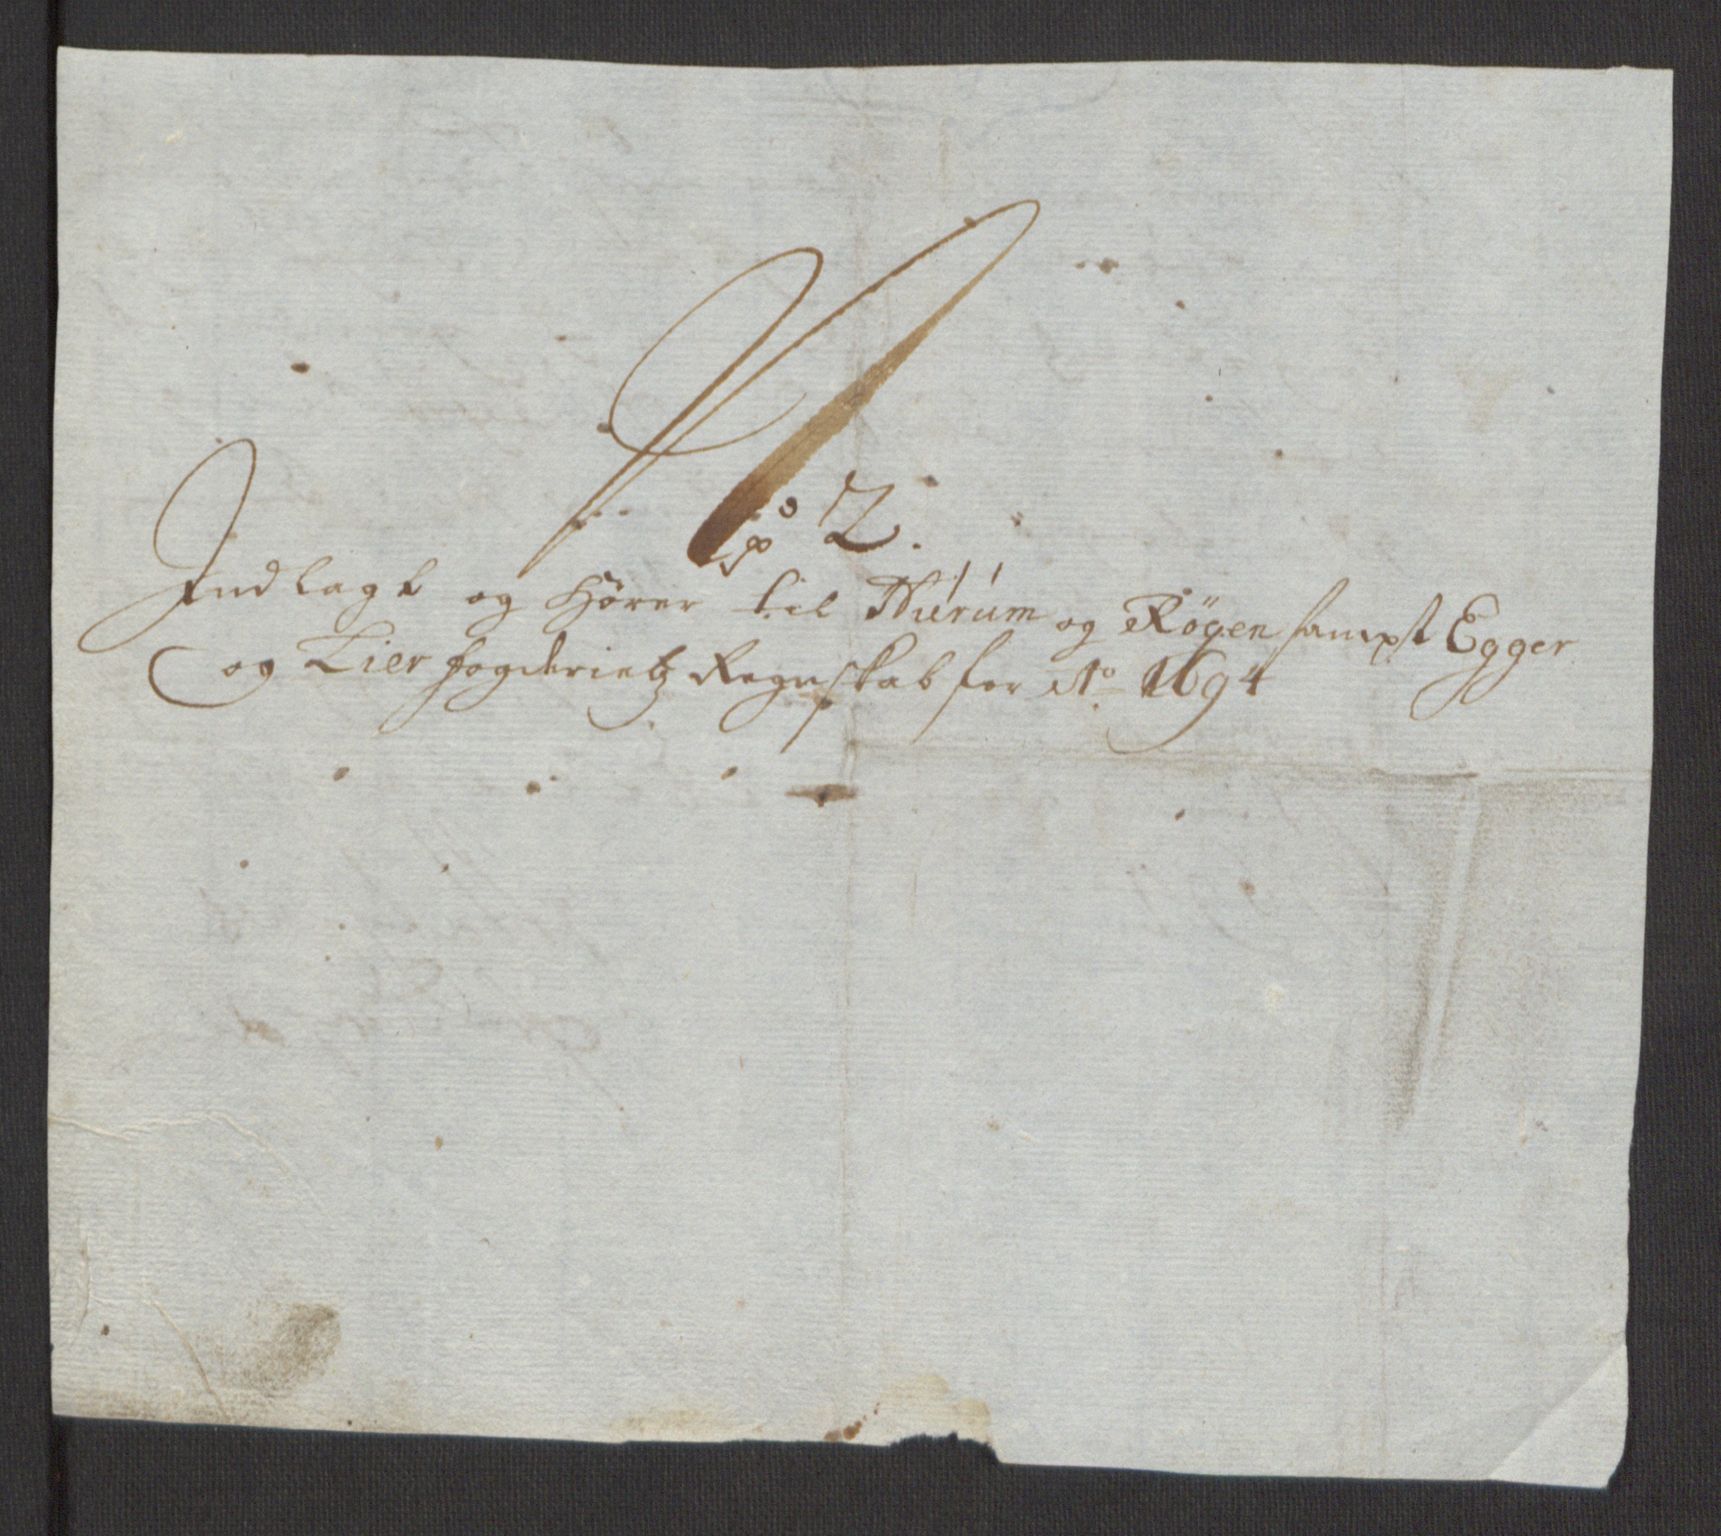 No 2.
Indlagt og hörer til Hurum og Rögen sampt Egger
og Lier fogderietz Regnskab for Ao. 1694